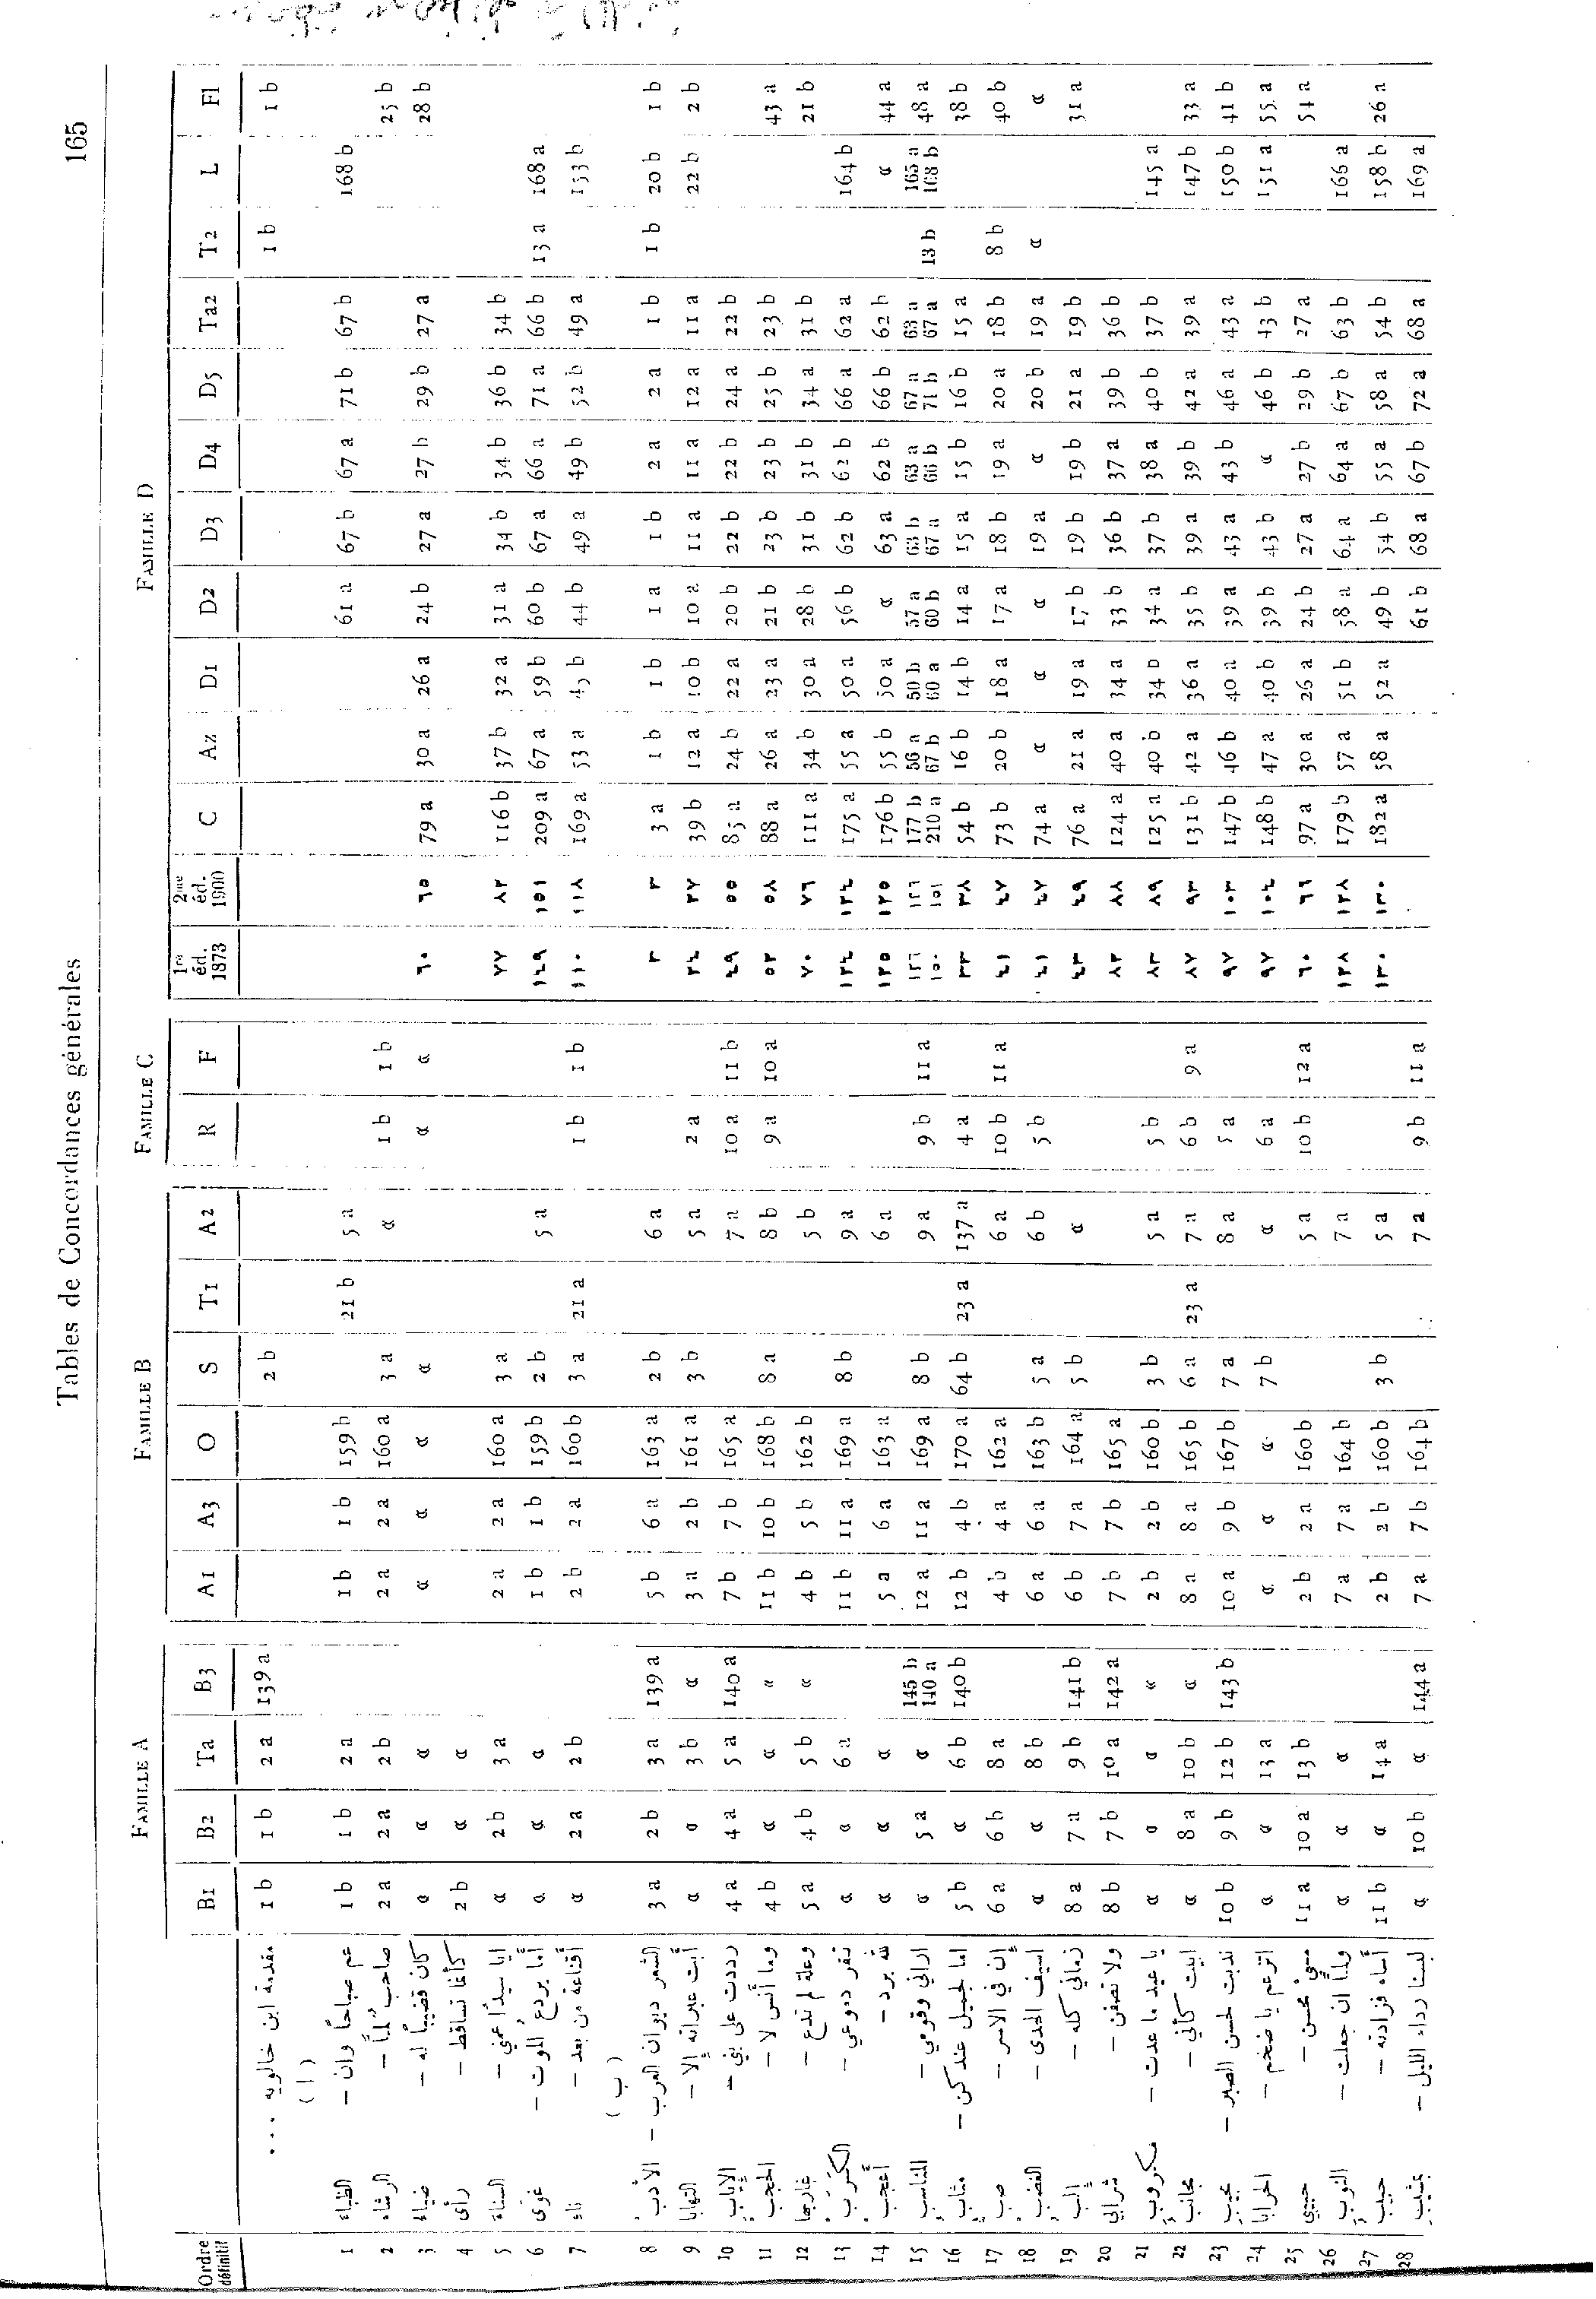 165
Tables de Concordances générales
FAMILLE A FAMILLE B FAMILLE C FAMILLE D
Ordre définitif B1 B2 Ta B3 A1 A3 O S T1 A2 R F 1re éd. 1873 2me éd. 1900 C Az D1 D2 D3 D4 D5 Ta2 T2 L Fl
مقدمة ابن خالويه ... 1 b 1 b 2 a 139 a 2 b 1 b 1 b
( ا )
1 الظباء عم صباحاً وان – 1 b 1 b 2 a 1 b 1 b 159 b 21 b 5 a 61 a 67 b 67 a 71 b 67 b 168 b
2 الرشاء صاحب لمّا – 2 a 2 a 2 b 2 a 2 a 160 a 3 a « 1 b 1 b 25 b
3 ضياء كان قضيباً له – « « « « « « « « « ٦٠ ٦٥ 79 a 30 a 26 a 24 b 27 a 27 b 29 b 27 a 28 b
4 رأى كأنما تساقط – 2 b « «
5 السناء ايا سيداً عمني – « 2 b 3 a 2 a 2 a 160 a 3 a ٧٧ ٨٢ 116 b 37 b 32 a 31 a 34 b 34 b 36 b 34 b
6 غوى أما يردع الموت – « « « 1 b 1 b 159 b 2 b 5 a ١٤٩ ١٥١ 209 a 67 a 59 b 60 b 67 a 66 a 71 a 66 b 13 a 168 a
7 ناء أقناعة من بعد – « 2 a 2 b 2 b 2 a 160 b 3 a 21 a 1 b 1 b ١١٠ ١١٨ 169 a 53 a 45 b 44 b 49 a 49 b 52 b 49 a 153 b
( ب )
8 الأدب الشعر ديوان العرب – 3 a 2 b 3 a 139 a 5 b 6 a 163 a 2 b 6 a ٣ ٣ 3 a 1 b 1 b 1 a 1 b 2 a 2 a 1 b 1 b 20 b 1 b
9 التهابا أبت عبراته إلا – « « 3 b « 3 a 2 b 161 a 3 b 5 a 2 a ٣٤ ٣٧ 39 b 12 a 10 b 10 a 11 a 11 a 12 a 11 a 22 b 2 b
10 الإياب رددت على بني – 4 a 4 a 5 a 140 a 7 b 7 b 165 a 7 a 10 a 11 b ٤٩ ٥٥ 85 a 24 b 22 a 20 b 22 b 22 b 24 a 22 b
11 الحجب وما أنس لا – 4 b « « « 11 b 10 b 168 b 8 a 8 b 9 a 10 a ٥٢ ٥٨ 88 a 26 a 23 a 21 b 23 b 23 b 25 b 23 b 43 a
12 غاربها وعلة لم تدع – 5 a 4 b 5 b « 4 b 5 b 162 b 5 b ٧٠ ٧٦ 111 a 34 b 30 a 28 b 31 b 31 b 34 a 31 b 21 b
13 الكثب نفر دموعي – « « 6 a 11 b 11 a 169 a 8 b 9 a ١٢٤ ١٢٤ 175 a 55 a 50 a 56 b 62 b 62 b 66 a 62 a 164 b
14 أعجب لله برد – « « « 5 a 6 a 163 a 6 a ١٢٥ ١٢٥ 176 b 55 b 50 a « 63 a 62 b 66 b 62 b « 44 a
15 المناسب اراني وقومي – « 5 a « 145 b 140 a 12 a 11 a 169 a 8 b 9 a 9 b 11 a ١٢٦ ١٥٠ ١٢٦ ١٥١ 177 b 210 a 56 a 67 b 50 b 60 a 57 a 60 b 63 b 67 a 63 a 66 b 67 a 71 b 63 a 67 a 13 b 165 a 168 b 48 a
16 مثاب اما لجميل عندكن – 5 b « 6 b 140 b 12 b 4 b 170 a 64 b 23 a 137 a 4 a ٣٣ ٣٨ 54 b 16 b 14 b 14 a 15 a 15 b 16 b 15 a 38 b
17 صب إن في الاسر – 6 a 6 b 8 a 4 b 4 a 162 a 6 a 10 b 11 a ٤١ ٤٧ 73 b 20 b 18 a 17 a 18 b 19 a 20 a 18 b 8 b 40 b
18 الغضب اسيف الهدى – « « 8 b 6 a 6 a 163 b 5 a 6 b 5 b ٤١ ٤٧ 74 a « « « 19 a « 20 b 19 a « «
19 إلب زماني كله – 8 a 7 a 9 b 141 b 6 b 7 a 164 a 5 b « ٤٣ ٤٩ 76 a 21 a 19 a 17 b 19 b 19 b 21 a 19 b 31 a
20 شرابي ولا تصفن – 8 b 7 b 10 a 142 a 7 b 7 b 165 a ٨٢ ٨٨ 124 a 40 a 34 a 33 b 36 b 37 a 39 b 36 b
21 مكروب يا عيد ما عدت – « « « « 2 b 2 b 160 b 3 b 5 a 5 b ٨٣ ٨٩ 125 a 40 b 34 b 34 a 37 b 38 a 40 b 37 b 145 a
22 مجانب ابيت كأني – « 8 a 10 b « 8 a 8 a 165 b 6 a 23 a 7 a 6 b 9 a ٨٧ ٩٣ 131 b 42 a 36 a 35 b 39 a 39 b 42 a 39 a 147 b 33 a
23 نجيب ندبت لحسن الصبر – 10 b 9 b 12 b 143 b 10 a 9 b 167 b 7 a 8 a 5 a ٩٧ ١٠٣ 147 b 46 b 40 a 39 a 43 a 43 b 46 a 43 a 150 b 41 b
24 الحرابا اتزعم يا ضخم – « « 13 a « « « 7 b « 6 a ٩٧ ١٠٤ 148 b 47 a 40 b 39 b 43 b « 46 b 43 b 151 a 55 a
25 حبيبي مسيء محسن – 11 a 10 a 13 b 2 b 2 a 160 b 5 a 10 b 12 a ٦٠ ٦٦ 97 a 30 a 26 a 24 b 27 a 27 b 29 b 27 a 54 a
26 النوب ولما ان جعلت – « « « 7 a 7 a 164 b 7 a ١٢٨ ١٢٨ 179 b 57 a 51 b 58 a 64 a 64 a 67 b 63 b 166 a
27 حبيب أساء فزادته – 11 b « 14 a 2 b 2 b 160 b 3 b 5 a ١٣٠ ١٣٠ 182 a 58 a 52 a 49 b 54 b 55 a 58 a 54 b 158 b 26 a
28 بمشيب لبسنا رداء الليل – « 10 b « 144 a 7 a 7 b 164 b 7 a 9 b 11 a 61 b 68 a 67 b 72 a 68 a 169 a